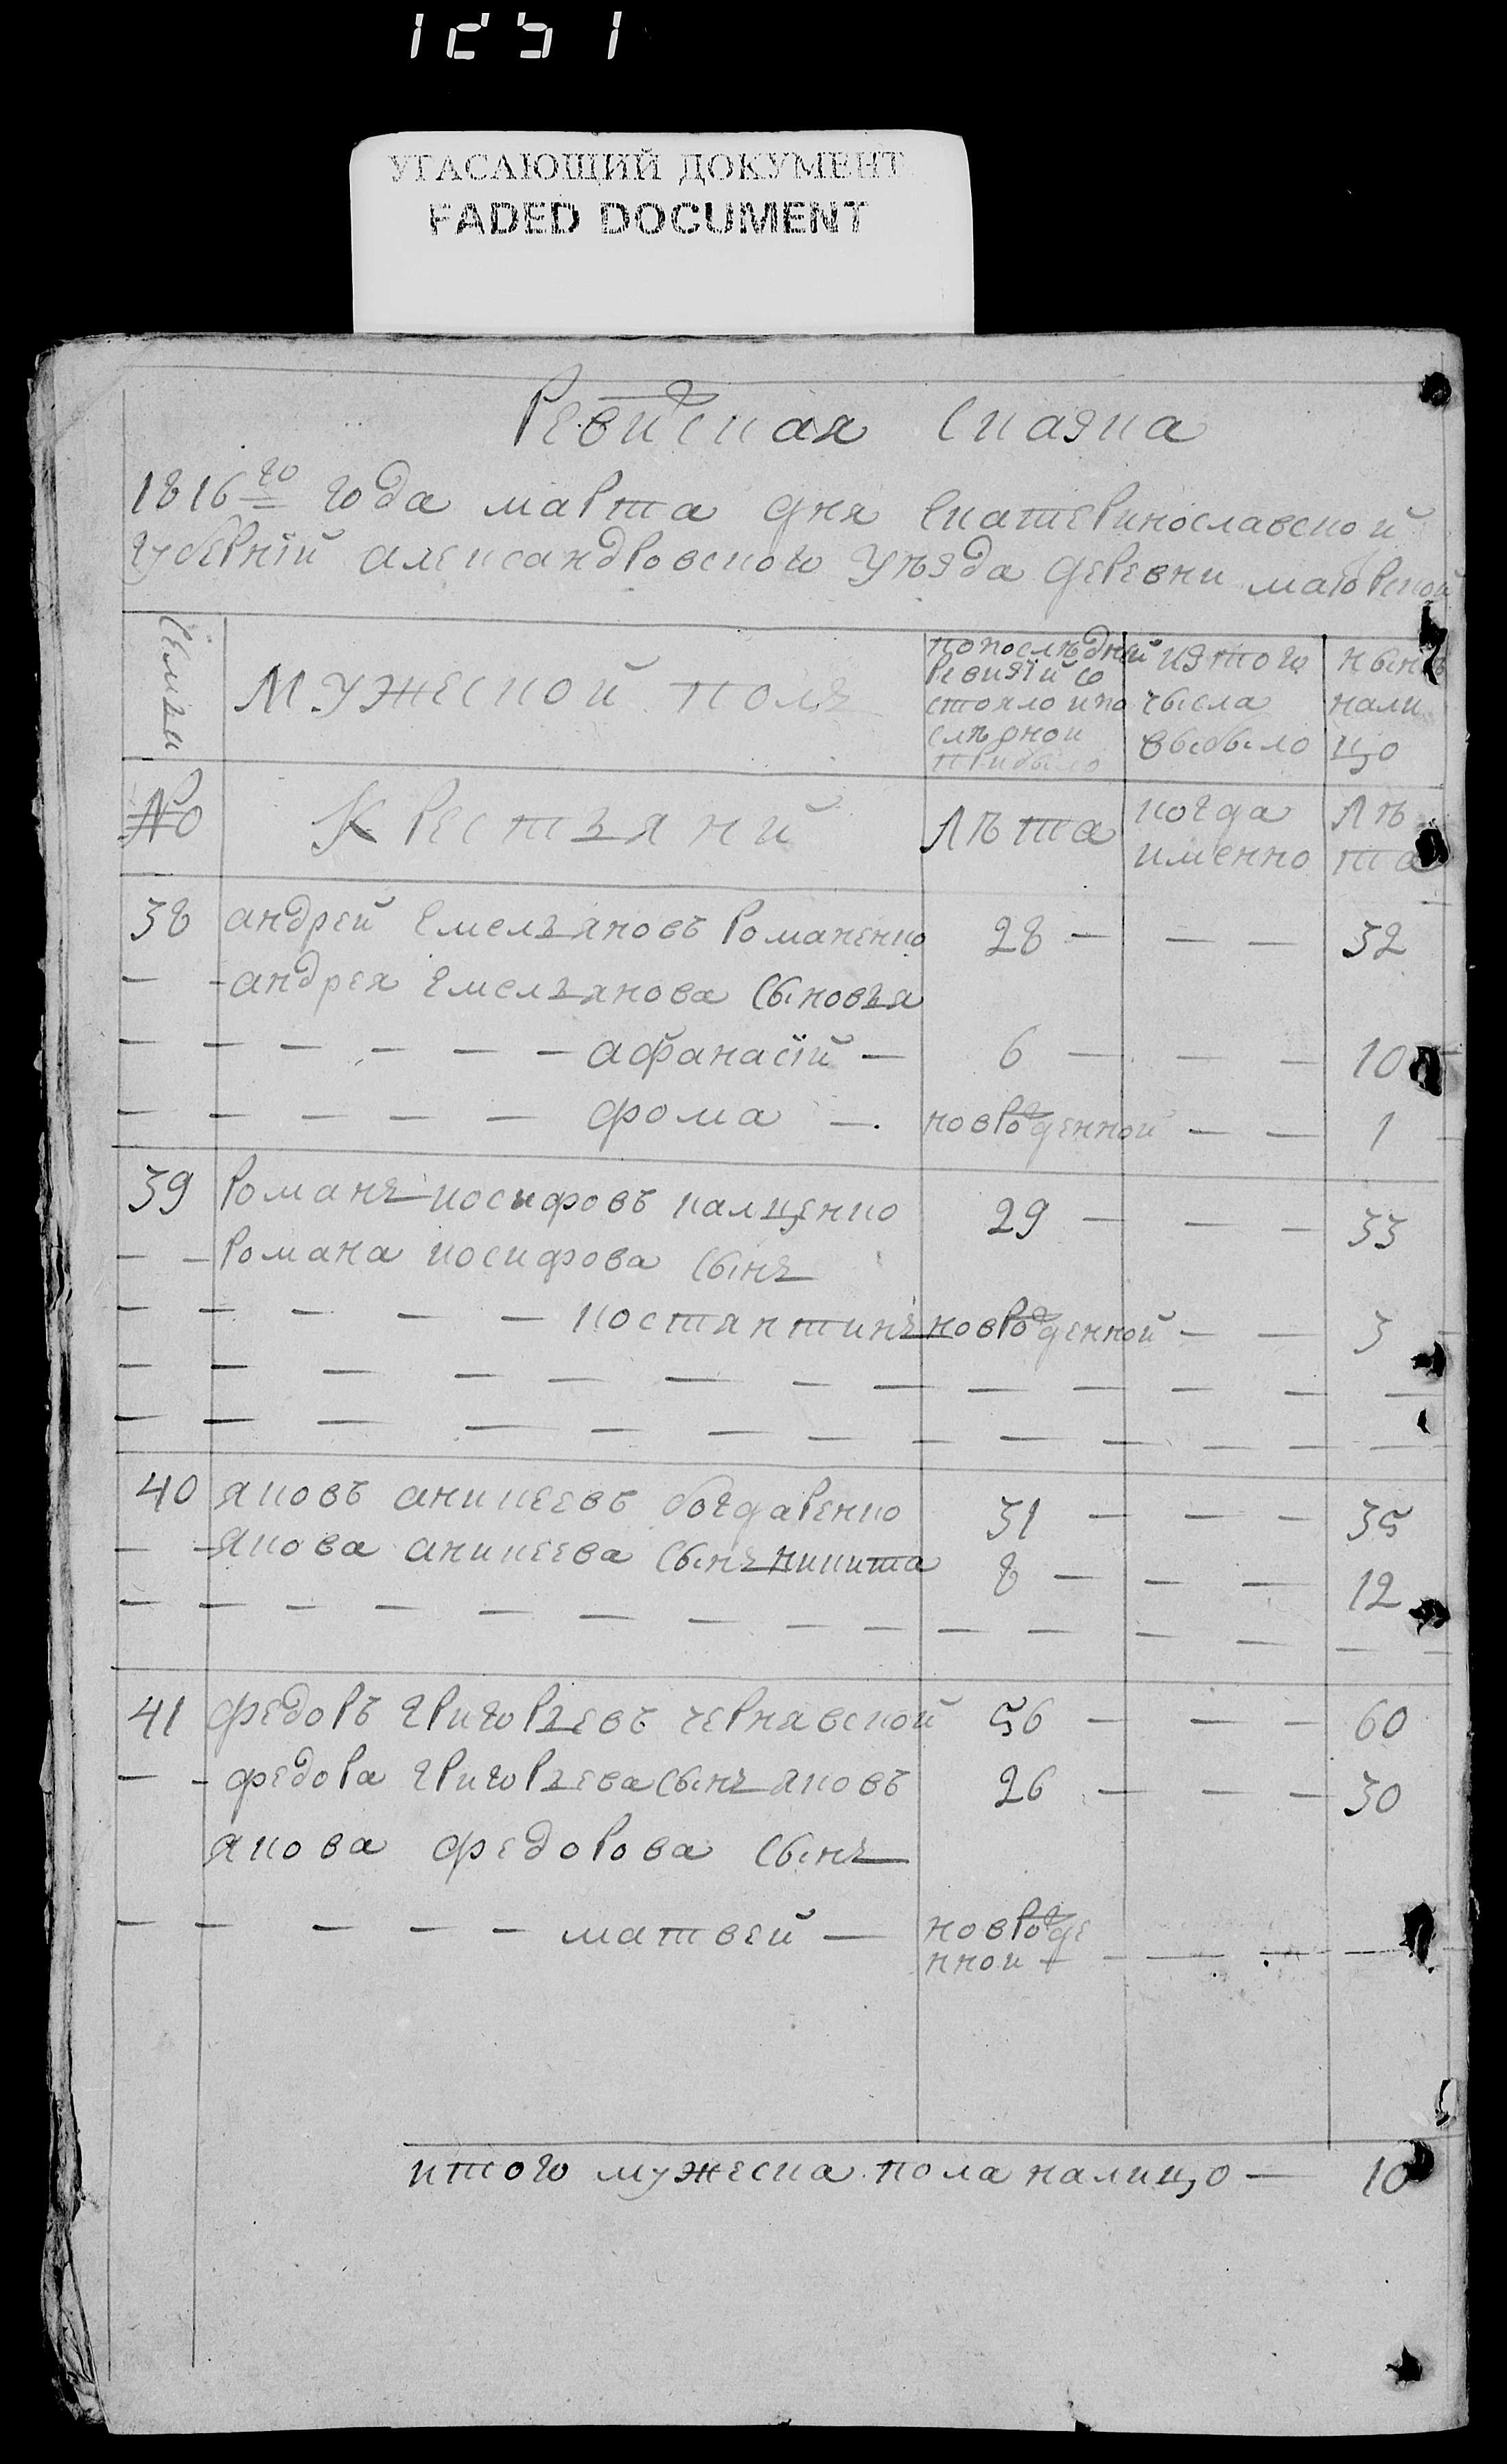 1251
УГАСАЮЩИЙ ДОКУМЕНТ
FADED DOCUMENT
Ревиской Сказка
1816го года марта дня Екатеринославской
губернїй александровского уѣзда деревни маюрской
Семьи
мужеской полъ
попоследней ревизїй состояло ипослѣ оной прибыло
изтого чысла выбыло
нынѣ налицо
№
Крестьяний
лѣта
когда именно
лѣта
38 андрей Емельяновъ Романенко 28 — — — 32
— - андрея Емельянова Сыновья
— — — — — — афанасїй — 6 — — — 10
— — — — — фома — новрожденной — — 1
39 Романъ иосифовъ калценко 29 — — — 33
— — Романа иосифова Сынъ
— — — — — костянтинъ новрожденной — — 3
40 яковъ аникеевъ богдаренко 31 — — — 35
— - якова аникеева Сынъ никита 8 — — — 12
41 федоръ григорьевъ чернявской 56 — — — 60
— - федора григорьева Сынъ яковъ 26 — — — 30
якова федорова Сынъ
— — — — — матвей — новрожденной — — —
итого мужеска пола налицо — 10